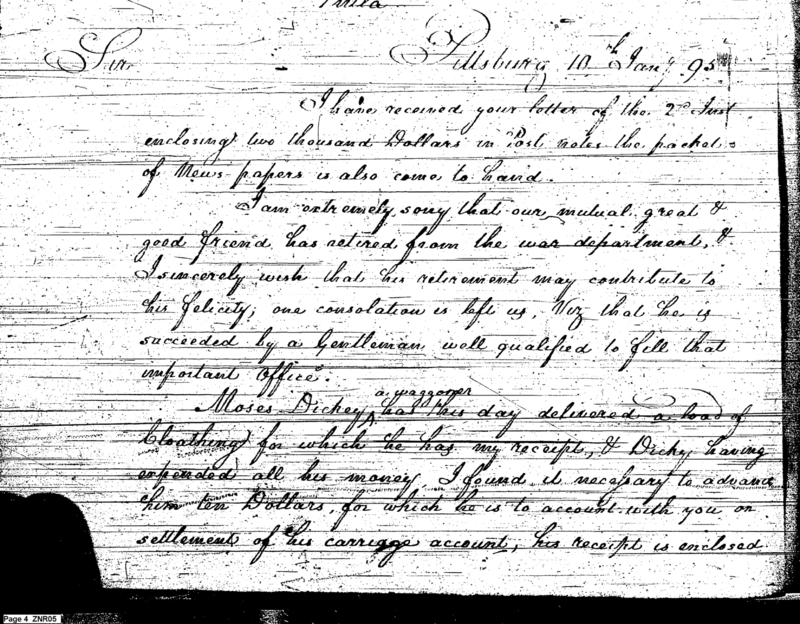 Phila
Sir Pittsburg 10th Jany. 95
I have received your letter of the 2nd Inst
enclosing two thousand Dollars in Post notes the packet
of News-papers is also come to hand.
I am extremely sorry that our mutual great &
good friend has retired from the war department, &
I sincerely wish that his retirement may contribute to
his felicity; one consolation is left us, Viz that he is
succeeded by a Gentleman well qualified to fill that
important office.
a waggoner
Moses Dickey ^ has this day delivered a load of
Cloathing for which he has my receipt, & Dicky having
expended all his money I found it necessary to advance
him ten Dollars, for which he is to account with you on
settlement of his carriage account, his receipt is enclosed
Page 4 ZNR05